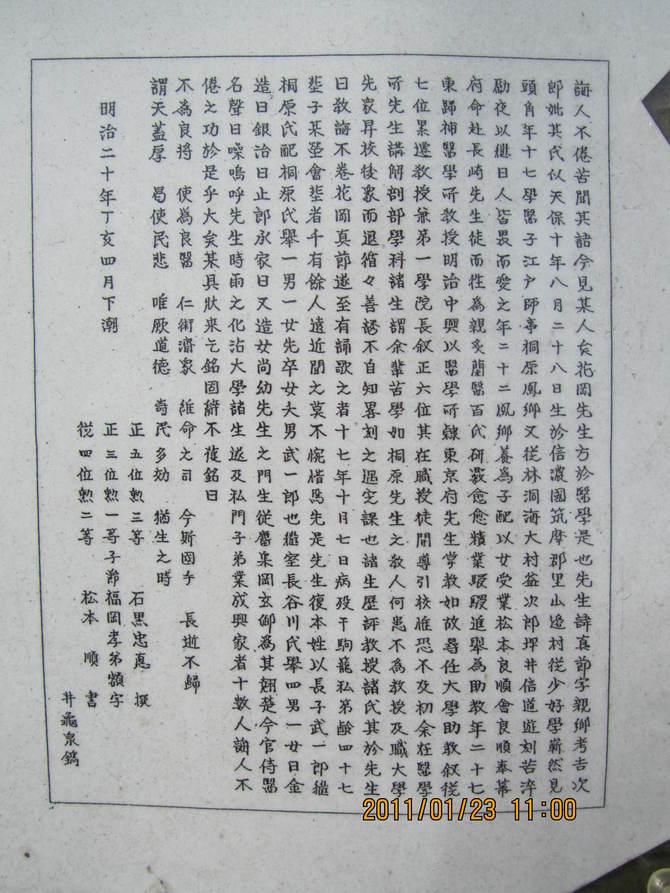 誨人不倦古聞其語今見某人矣花岡先生方於醫學是也先生諱真節字親郷考吉次
郎妣某氏以天保十年八月二十八日生於信濃國筑摩郡里山邉村従少好學嶄然見
頭角年十七學醫于江戸師事桐原鳳郷又従林洞海大村益次郎坪井信道遊刻苦淬
勵夜以継日人皆畏而愛之年二十二鳳郷養為子配以女受業松本良順會良順奉幕
府命赴長崎先生徒而徃為親炙蘭醫百氏研覈愈愈積業駸駸進舉為助教年二十七
東歸補醫學所教授明治中興以醫學所隷東京府先生掌教如故尋任大學助教叙従
七位累遷教授兼第一學院長叙正六位其在職授徒開導引掖惟恐不及初余在醫學
所先生講解剖部學科諸生謂余輩苦學如桐原先生之教人何患不為教授及職大學
先衆昇校後衆而退循々善誘不自知晷刻之過定課也諸生歴評教授諸氏其於先生
曰教誨不巻花岡真節遂至有誦歌之者十七年十月七日病歿于駒籠私第齢四十七
塟于某塋會塟者千有餘人遠近聞之莫不惋惜焉先是先生復本姓以長子武一郎繼
桐原氏配桐原氏舉一男一女先卒女夫男武一郎也繼室長谷川氏舉四男一女曰金
造曰銀治曰止郎承家曰又造女尚幼先生之門生従屬集岡玄卿為其翹楚今官侍醫
名聲日噪嗚呼先生時雨之化沾大學諸生遂及私門子弟業成興家者十數人誨人不
倦之功於是乎大矣某具状来乞銘固辭不獲銘曰
不為良將　使為良醫　仁術濟衆　維命之司　今斯國手　長逝不歸
謂天蓋厚　曷使民悲　唯厥道德　奇民多効　猶生之時
明治二十年丁亥四月下澣
正五位勲三等　石黒忠悳　撰
正三位勲一等子爵福岡孝弟額字
従四位勲二等　松本　順　書
井龜泉鐫
2011/01/23 11:00